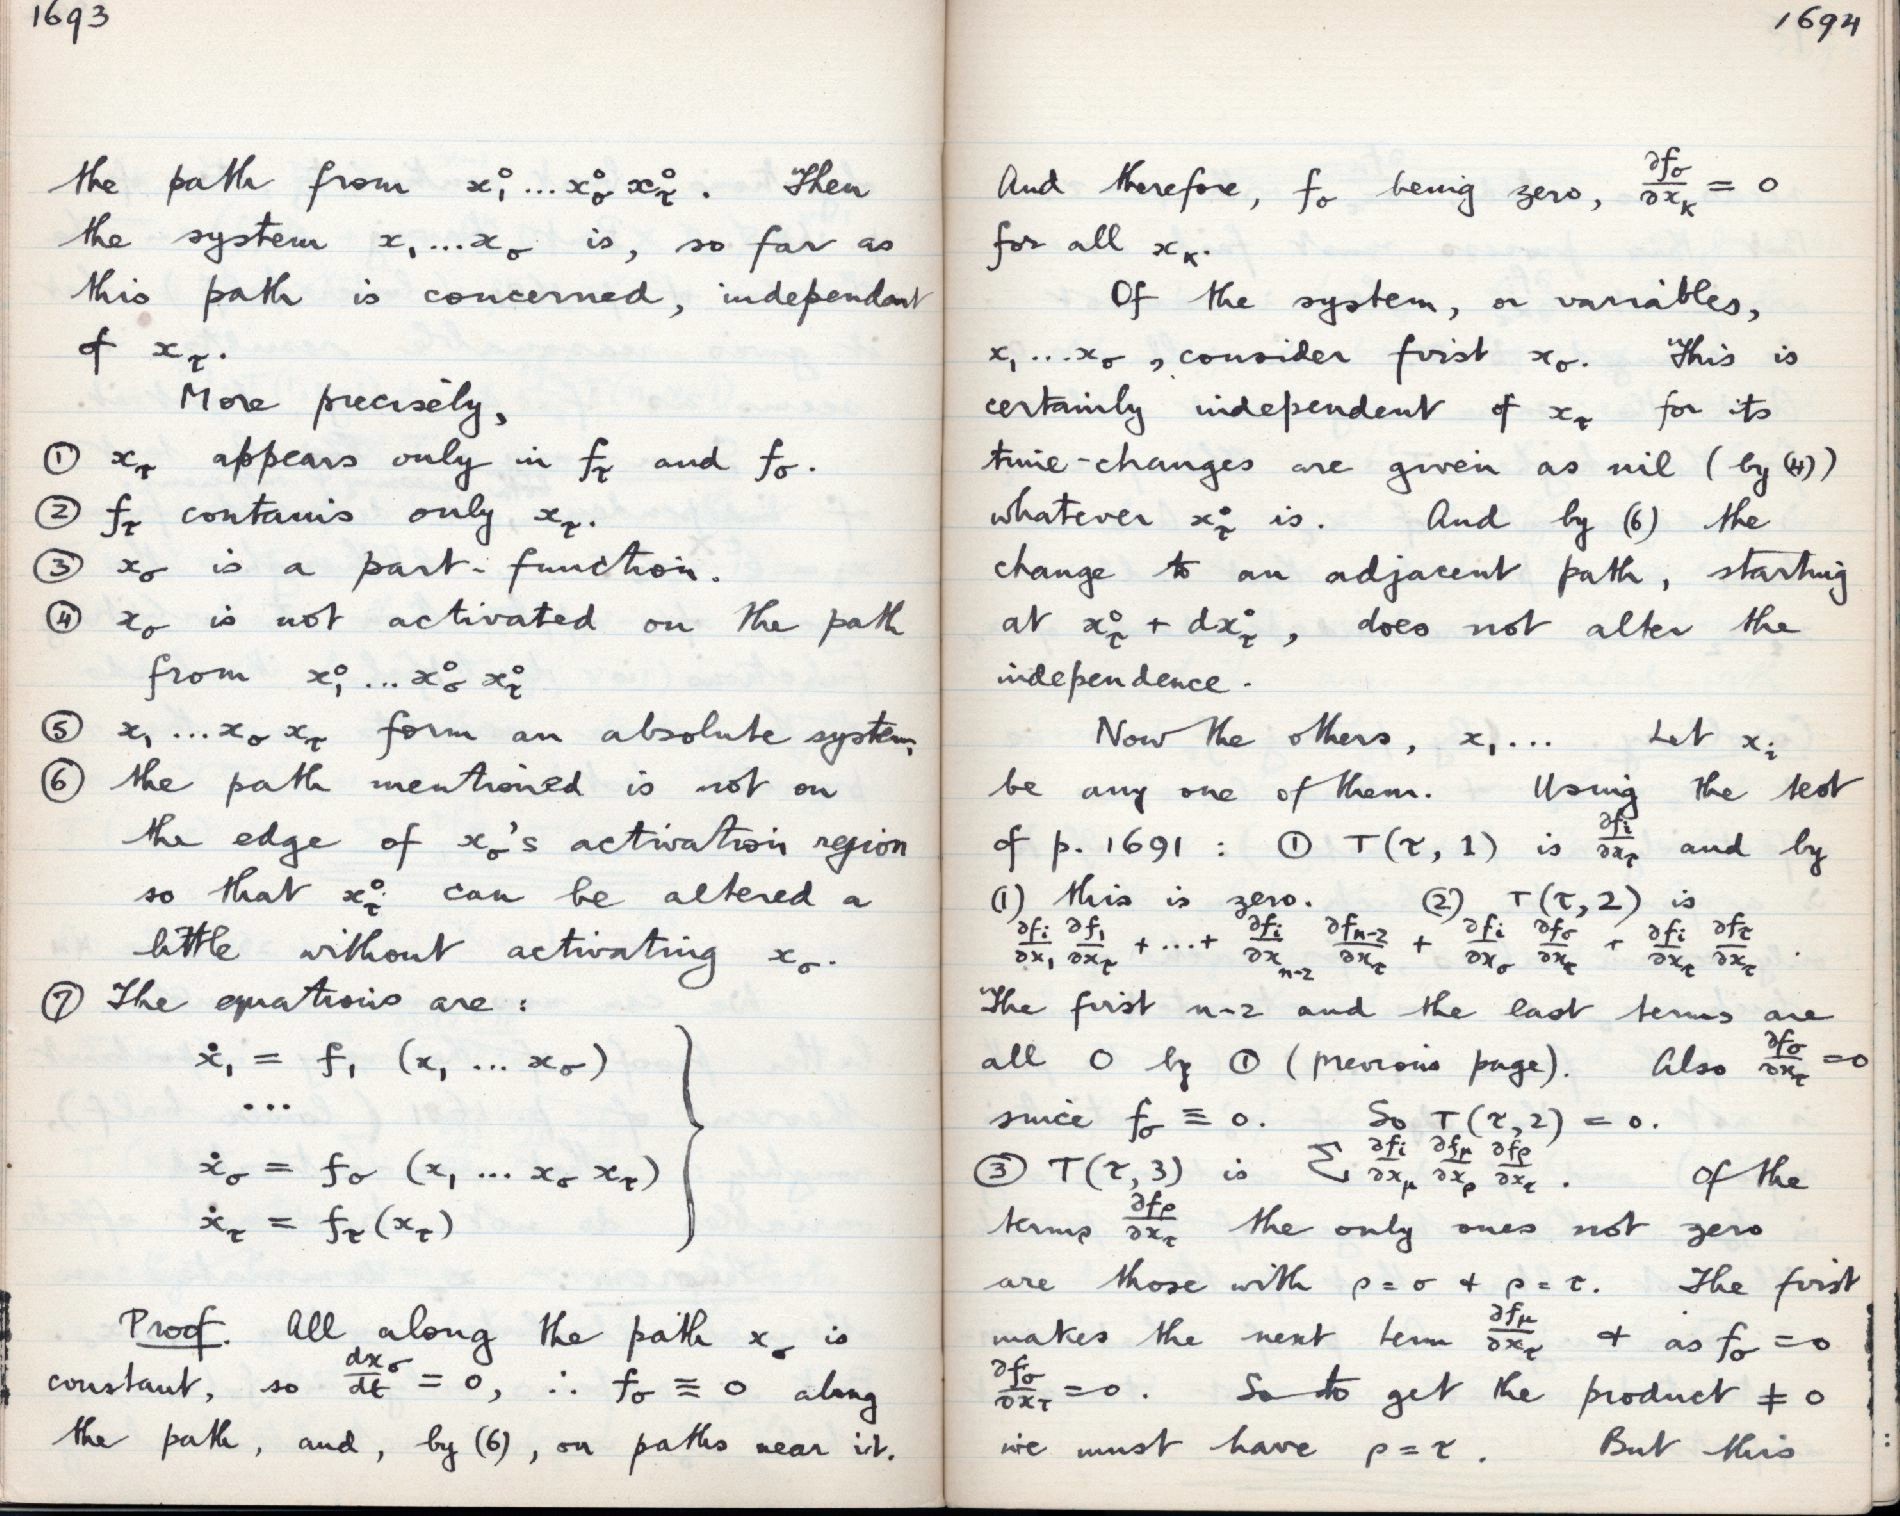 1693
the path from x₁° ... x_σ° x_τ°. Then
the system x₁ ... x_σ is, so far as
this path is concerned, independant
of x_τ.
More precisely,
① x_τ appears only in f_τ and f_σ.
② f_τ contains only x_τ.
③ x_σ is a part-function.
④ x_σ is not activated on the path
from x₁° ... x_σ° x_τ°
⑤ x₁ ... x_σ x_τ form an absolute system,
⑥ the path mentioned is not on
the edge of x_σ's activation region
so that x_τ° can be altered a
little without activating x_σ.
⑦ The equations are:
ẋ₁ = f₁ (x₁ ... x_σ)
...
ẋ_σ = f_σ (x₁ ... x_σ x_τ)
ẋ_τ = f_τ (x_τ)
Proof. All along the path x_σ is
constant, so dx_σ/dt = 0, ∴ f_σ ≡ 0 along
the path, and, by (6), on paths near it.
1694
And therefore, f_σ being zero, ∂f_σ/∂x_κ = 0
for all x_κ.
Of the system, or variables,
x₁ ... x_σ, consider first x_σ. This is
certainly independent of x_τ for its
time-changes are given as nil (by (4))
whatever x_τ° is. And by (6) the
change to an adjacent path, starting
at x_τ° + dx_τ°, does not alter the
independence.
Now the others, x₁ ... Let x_i
be any one of them. Using the test
of p. 1691 : ① T(τ, 1) is ∂f_i/∂x_τ and by
(1) this is zero. (2) T(τ, 2) is
∂f_i/∂x₁ ∂f₁/∂x_τ + ... + ∂f_i/∂x_n-2 ∂f_n-2/∂x_τ + ∂f_i/∂x_σ ∂f_σ/∂x_τ + ∂f_i/∂x_τ ∂f_τ/∂x_τ .
The first n-2 and the last terms are
all 0 by ① (previous page). Also ∂f_σ/∂x_τ = 0
since f_σ ≡ 0. So T(τ, 2) = 0.
③ T(τ, 3) is Σ ∂f_i/∂x_μ ∂f_μ/∂x_ρ ∂f_ρ/∂x_τ . Of the
terms ∂f_ρ/∂x_τ the only ones not zero
are those with ρ = σ + ρ = τ. The first
makes the next term ∂f_μ/∂x_τ + as f_σ = 0
∂f_σ/∂x_τ = 0. So to get the product ≠ 0
we must have ρ = τ. But this